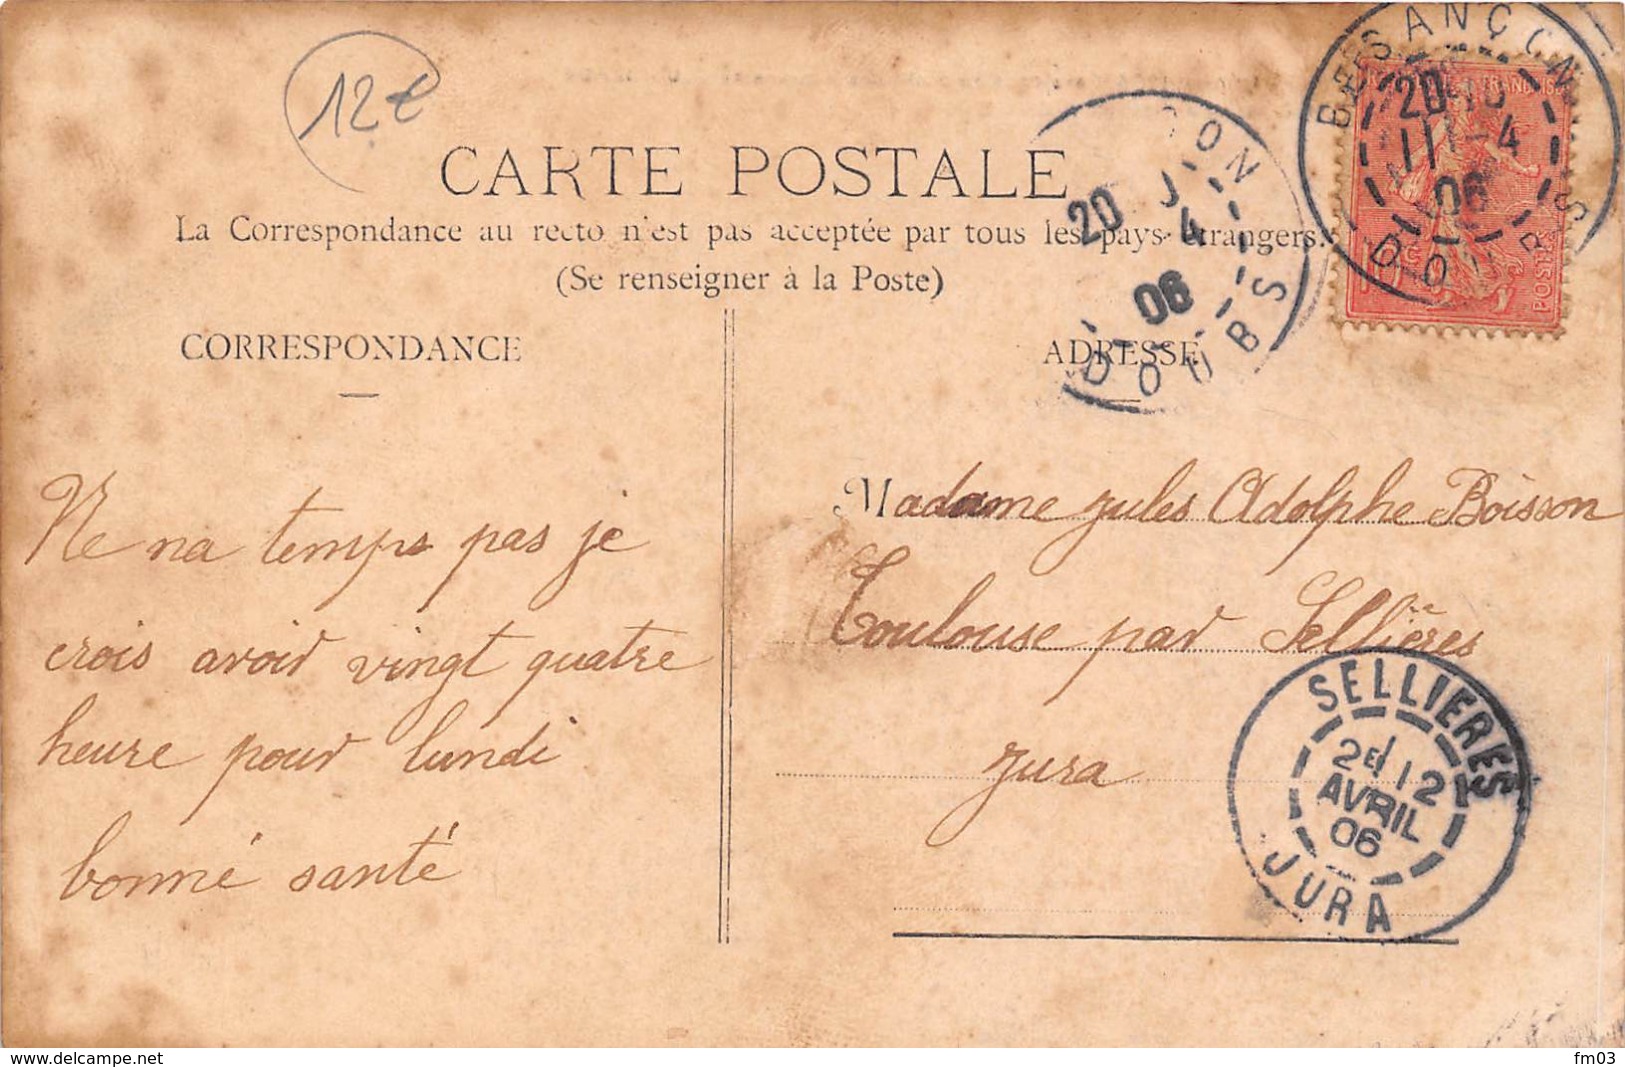 12€
CARTE POSTALE
La Correspondance au recto n'est pas acceptée par tous les pays étrangers.
(Se renseigner à la Poste)
CORRESPONDANCE
ADRESSE
Ne na temps pas je
crois avoir vingt quatre
heure pour lundi
bonné santé
Madame Jules Adolphe Boisson
Toulouse par Sellières
Jura
BESANÇON
20
11-4
06
DOUBS
ÇON
20
4
06
DOUBS
POSTES
SELLIERES
2E 12
AVRIL
06
JURA
www.delcampe.net
fm03